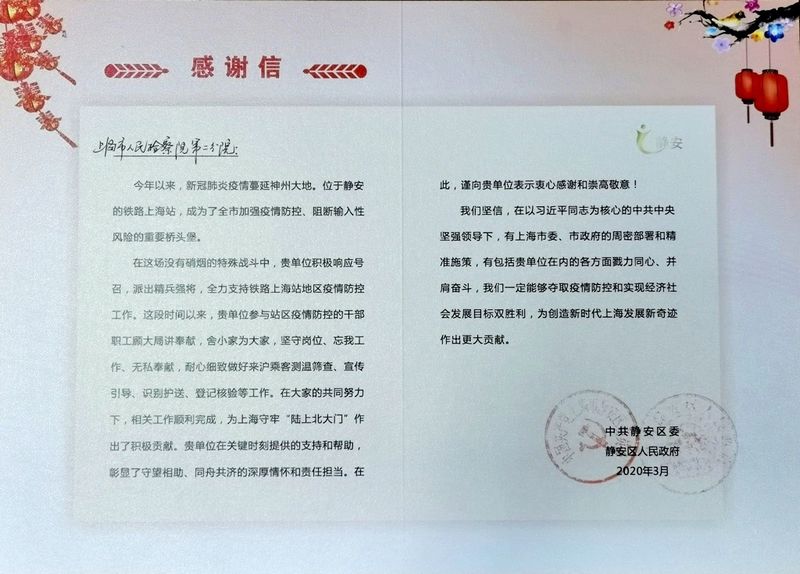 感谢信
上海市人民检察院第二分院：
静安
今年以来，新冠肺炎疫情蔓延神州大地。位于静安
的铁路上海站，成为了全市加强疫情防控、阻断输入性
风险的重要桥头堡。
在这场没有硝烟的特殊战斗中，贵单位积极响应号
召，派出精兵强将，全力支持铁路上海站地区疫情防控
工作。这段时间以来，贵单位参与站区疫情防控的干部
职工顾大局讲奉献，舍小家为大家，坚守岗位、忘我工
作、无私奉献，耐心细致做好来沪乘客测温筛查、宣传
引导、识别护送、登记核验等工作。在大家的共同努力
下，相关工作顺利完成，为上海守牢“陆上北大门”作
出了积极贡献。贵单位在关键时刻提供的支持和帮助，
彰显了守望相助、同舟共济的深厚情怀和责任担当。在
此，谨向贵单位表示衷心感谢和崇高敬意！
我们坚信，在以习近平同志为核心的中共中央
坚强领导下，有上海市委、市政府的周密部署和精
准施策，有包括贵单位在内的各方面戮力同心、并
肩奋斗，我们一定能够夺取疫情防控和实现经济社
会发展目标双胜利，为创造新时代上海发展新奇迹
作出更大贡献。
中共静安区委
静安区人民政府
2020年3月